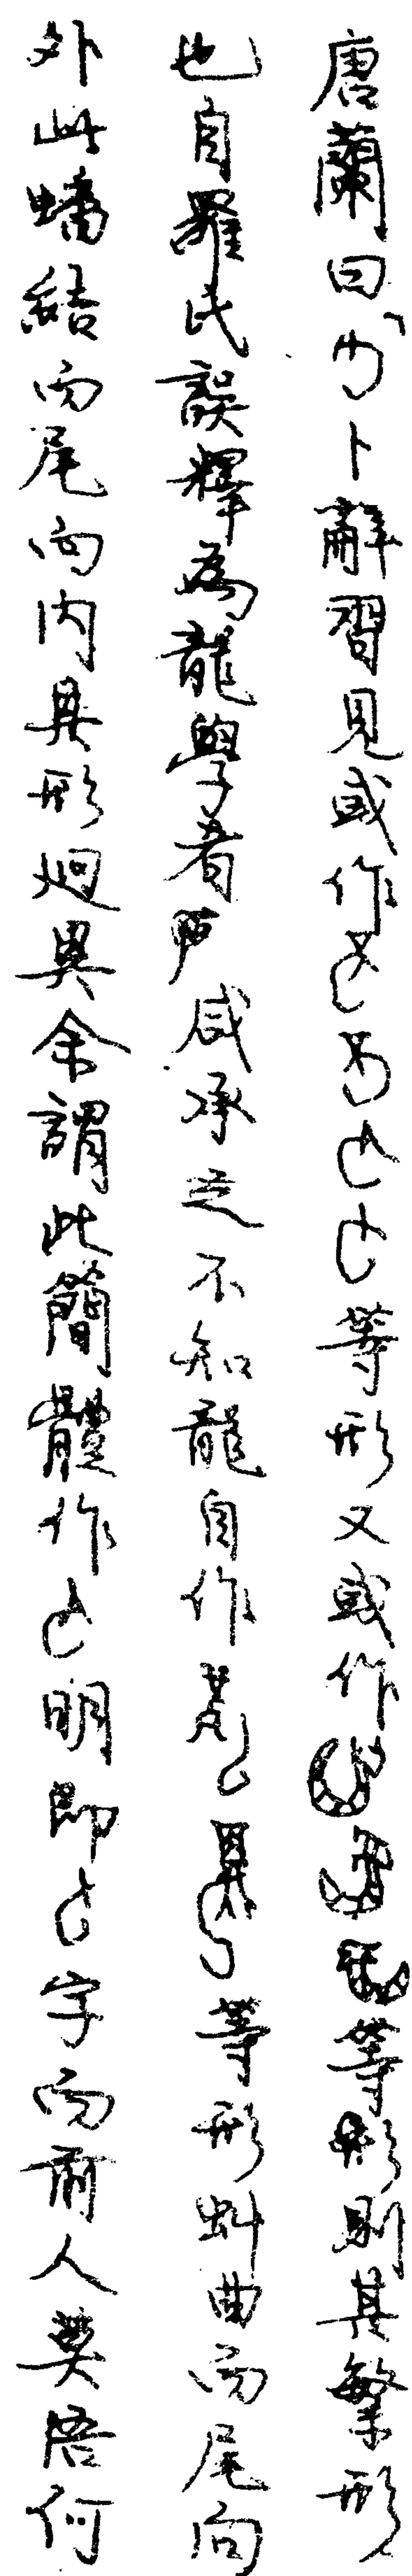 唐蘭曰卜辭習見或作等形又或作等形則其繁形
也自羅氏誤釋為龍學者咸承之不知龍自作等形虯曲而尾向
外此蟠結而尾向内其形迥異余謂此簡體作明即字而前人莫悟何